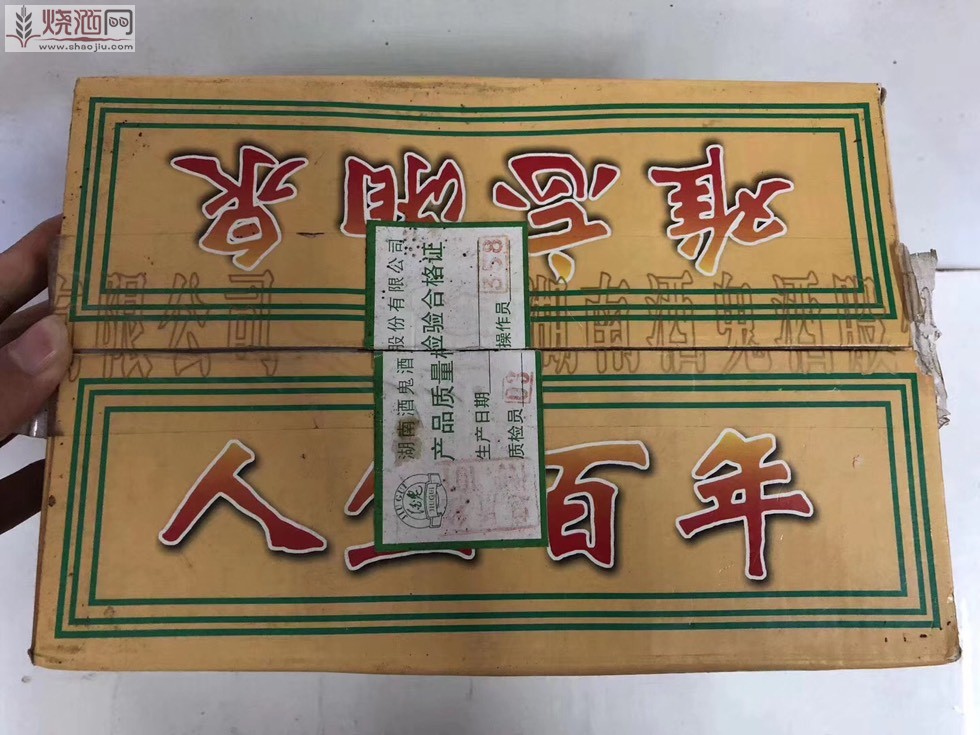 烧酒网
www.shaojiu.com
难忘湘泉
限公司
湖南酒鬼酒股
湖南酒鬼酒股份有限公司
产品质量检验合格证
生产日期
操作员 358
质检员 03
JIUGUI
人生百年